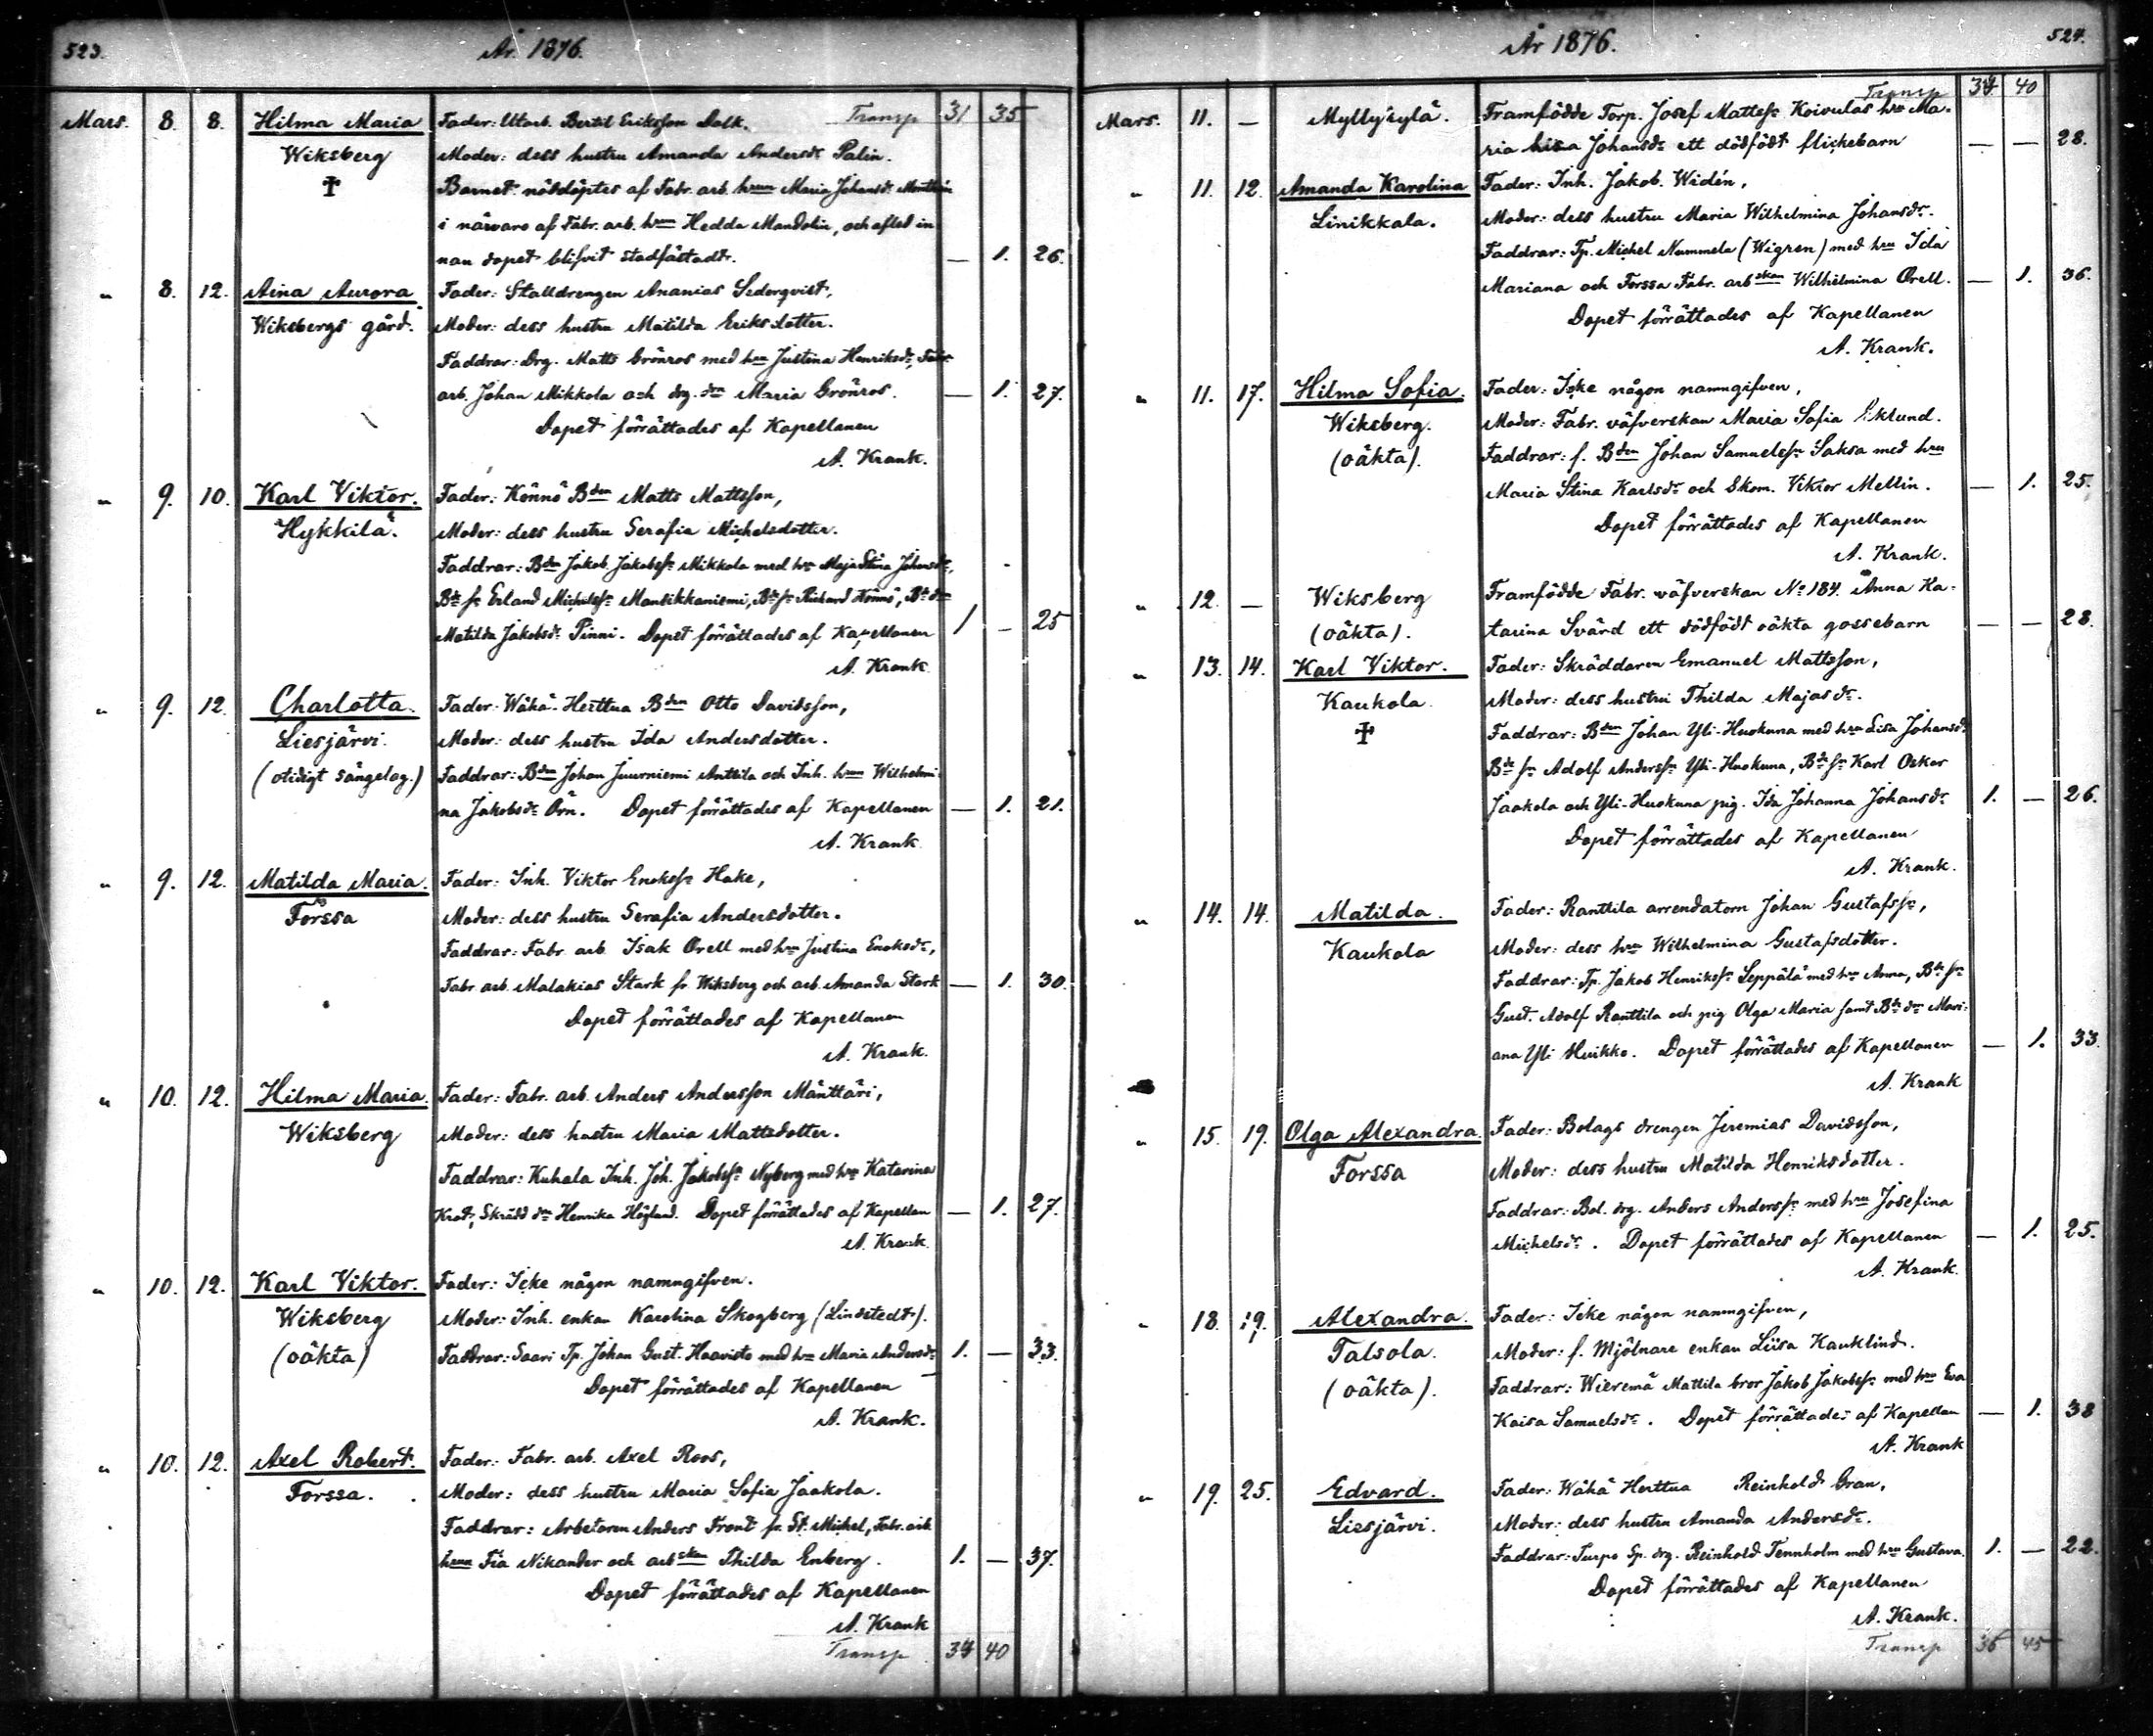 523.
År 1876.
Transp 31 35
Mars. 8. 8. Hilma Maria Fader: Utarb. Bertil Eriksson Dalk.
Wiksberg Moder: dess hustru Amanda Andersdr Palin.
✝ Barnet nöddöptes af Fabr. arb. hrun Maria Johansdr
i närvaro af Fabr. arb. hrun Hedda Mandolin, och afled in
nan dopet blifvit stadfästadt. — 1. 26.
" 8. 12. Aina Aurora Fader: Stalldrengen Ananias Sederqvist,
Wiksbergs gård. Moder: dess hustru Matilda Eriksdotter.
Faddrar: Drg. Matts Grönros med hru Justina Henriksdr, Fabr.
arb. Johan Mikkola och drg. dra Maria Grönros. — 1. 27.
Dopet förrättades af Kapellanen
A. Krank.
" 9. 10. Karl Viktor. Fader: Könnö Bden Matts Mattsson,
Hykkilä. Moder: dess hustru Serafia Michelsdotter.
Faddrar: Bden Jakob Jakobssn Mikkola med hru Maja Stina Johansdr,
Bde sn Erland Michelssn Mansikkaniemi, Bde sn Richard Könnö, Bde dra
Matilda Jakobsdr Pinni. Dopet förrättades af Kapellanen 1 — 25
A. Krank
" 9. 12. Charlotta. Fader: Wähä-Herttua Bden Otto Davidsson,
Liesjärvi. Moder: dess hustru Ida Andersdotter.
(otidigt sängelag.) Faddrar: Bden Johan Juurniemi Anttila och Inh. hrun Wilhelmi-
na Jakobsdr Örn. Dopet förrättades af Kapellanen — 1. 21.
A. Krank
" 9. 12. Matilda Maria. Fader: Inh. Viktor Enokssn Hake,
Forssa Moder: dess hustru Serafia Andersdotter.
Faddrar: Fabr. arb. Isak Orell med hru Justina Enoksdr,
Fabr. arb. Malakias Stark fr. Wiksberg och arb. Amanda Stark — 1. 30.
Dopet förrättades af Kapellanen
A. Krank.
" 10. 12. Hilma Maria. Fader: Fabr. arb. Anders Andersson Mänttäri,
Wiksberg Moder: dess hustru Maria Mattsdotter.
Faddrar: Kuhala Inh. Joh. Jakobssn Nyberg med hru Katarina
Skrädd dra Henrika Höglund. Dopet förrättades af Kapellan — 1. 27.
A. Krank.
" 10. 12. Karl Viktor. Fader: Icke någon namngifven.
Wiksberg Moder: Inh. enkan Karolina Skogberg (Lindstedt).
(oäkta) Faddrar: Saari Tp. Johan Gust. Haavisto med hru Maria Andersdr 1. — 33.
Dopet förrättades af Kapellanen
A. Krank.
" 10. 12. Axel Robert. Fader: Fabr. arb. Axel Roos,
Forssa. Moder: dess hustru Maria Sofia Jaakola.
Faddrar: Arbetaren Anders Front fr. St. Michel, Fabr. arb.
hrun Fia Nikander och arbskan Thilda Enberg. 1. — 37.
Dopet förrättades af Kapellanen
A. Krank
Transp 34 40
524.
År 1876.
Transp 34 40
Mars. 11. — Myllyкylä. Framfödde Torp. Josef Mattssn Koivulas hru Ma-
ria Johansdr ett dödfödt flickebarn — — 28.
" 11. 12. Amanda Karolina Fader: Inh. Jakob Widén,
Linikkala. Moder: dess hustru Maria Wilhelmina Johansdr.
Faddrar: Tp. Michel Nummela (Wigren) med hru Ida
Mariana och Forssa Fabr. arbskan Wilhelmina Orell. — 1. 36.
Dopet förrättades af Kapellanen
A. Krank.
" 11. 17. Hilma Sofia. Fader: Icke någon namngifven,
Wiksberg. Moder: Fabr. väfverskan Maria Sofia Eklund.
(oäkta). Faddrar: f. Bden Johan Samuelssn Saksa med hru
Maria Stina Karlsdr och Skom. Viktor Mellin. — 1. 25.
Dopet förrättades af Kapellanen
A. Krank.
" 12. — Wiksberg Framfödde Fabr. väfverskan No 184. Anna Ka-
(oäkta). tarina Svärd ett dödfödt oäkta gossebarn — — 28.
" 13. 14. Karl Viktor. Fader: Skräddaren Emanuel Mattsson,
Kaukola. Moder: dess hustru Thilda Majasdr.
✝ Faddrar: Bden Johan Yli-Huokuna med hru Lisa Johansdr
Bde sn Adolf Anderssn Yli-Huokuna, Bde sn Karl Oskar
Jaakola och Yli-Huokuna pig. Ida Johanna Johansdr 1. — 26.
Dopet förrättades af Kapellanen
A. Krank.
" 14. 14. Matilda. Fader: Ranttila arrendatorn Johan Gustafssn,
Kaukola Moder: dess hru Wilhelmina Gustafsdotter.
Faddrar: Tp. Jakob Henrikssn Seppälä med hru Anna, Bde sn
Gust. Adolf Ranttila och pig Olga Maria samt Bde dra Mari-
ana Yli Huikko. Dopet förrättades af Kapellanen — 1. 33.
A. Krank
" 15. 19. Olga Alexandra. Fader: Bolags drengen Jeremias Davidsson,
Forssa Moder: dess hustru Matilda Henriksdotter.
Faddrar: Bol. drg. Anders Anderssn med hru Josefina
Michelsdr. Dopet förrättades af Kapellanen — 1. 25.
A. Krank.
" 18. 19. Alexandra. Fader: Icke någon namngifven,
Talsola. Moder: f. Mjölnare enkan Liisa Kauklind.
(oäkta). Faddrar: Wieremä Mattila bror Jakob Jakobssn med hru Eva
Kaisa Samuelsdr. Dopet förrättades af Kapellan — 1. 38
A. Krank
" 19. 25. Edvard. Fader: Wähä Herttua Reinhold Gran,
Liesjärvi. Moder: dess hustru Amanda Andersdr.
Faddrar: Turpo Sp. drg. Reinhold Tennholm med hru Gustava. 1. — 22.
Dopet förrättades af Kapellanen
A. Krank.
Transp 36 45